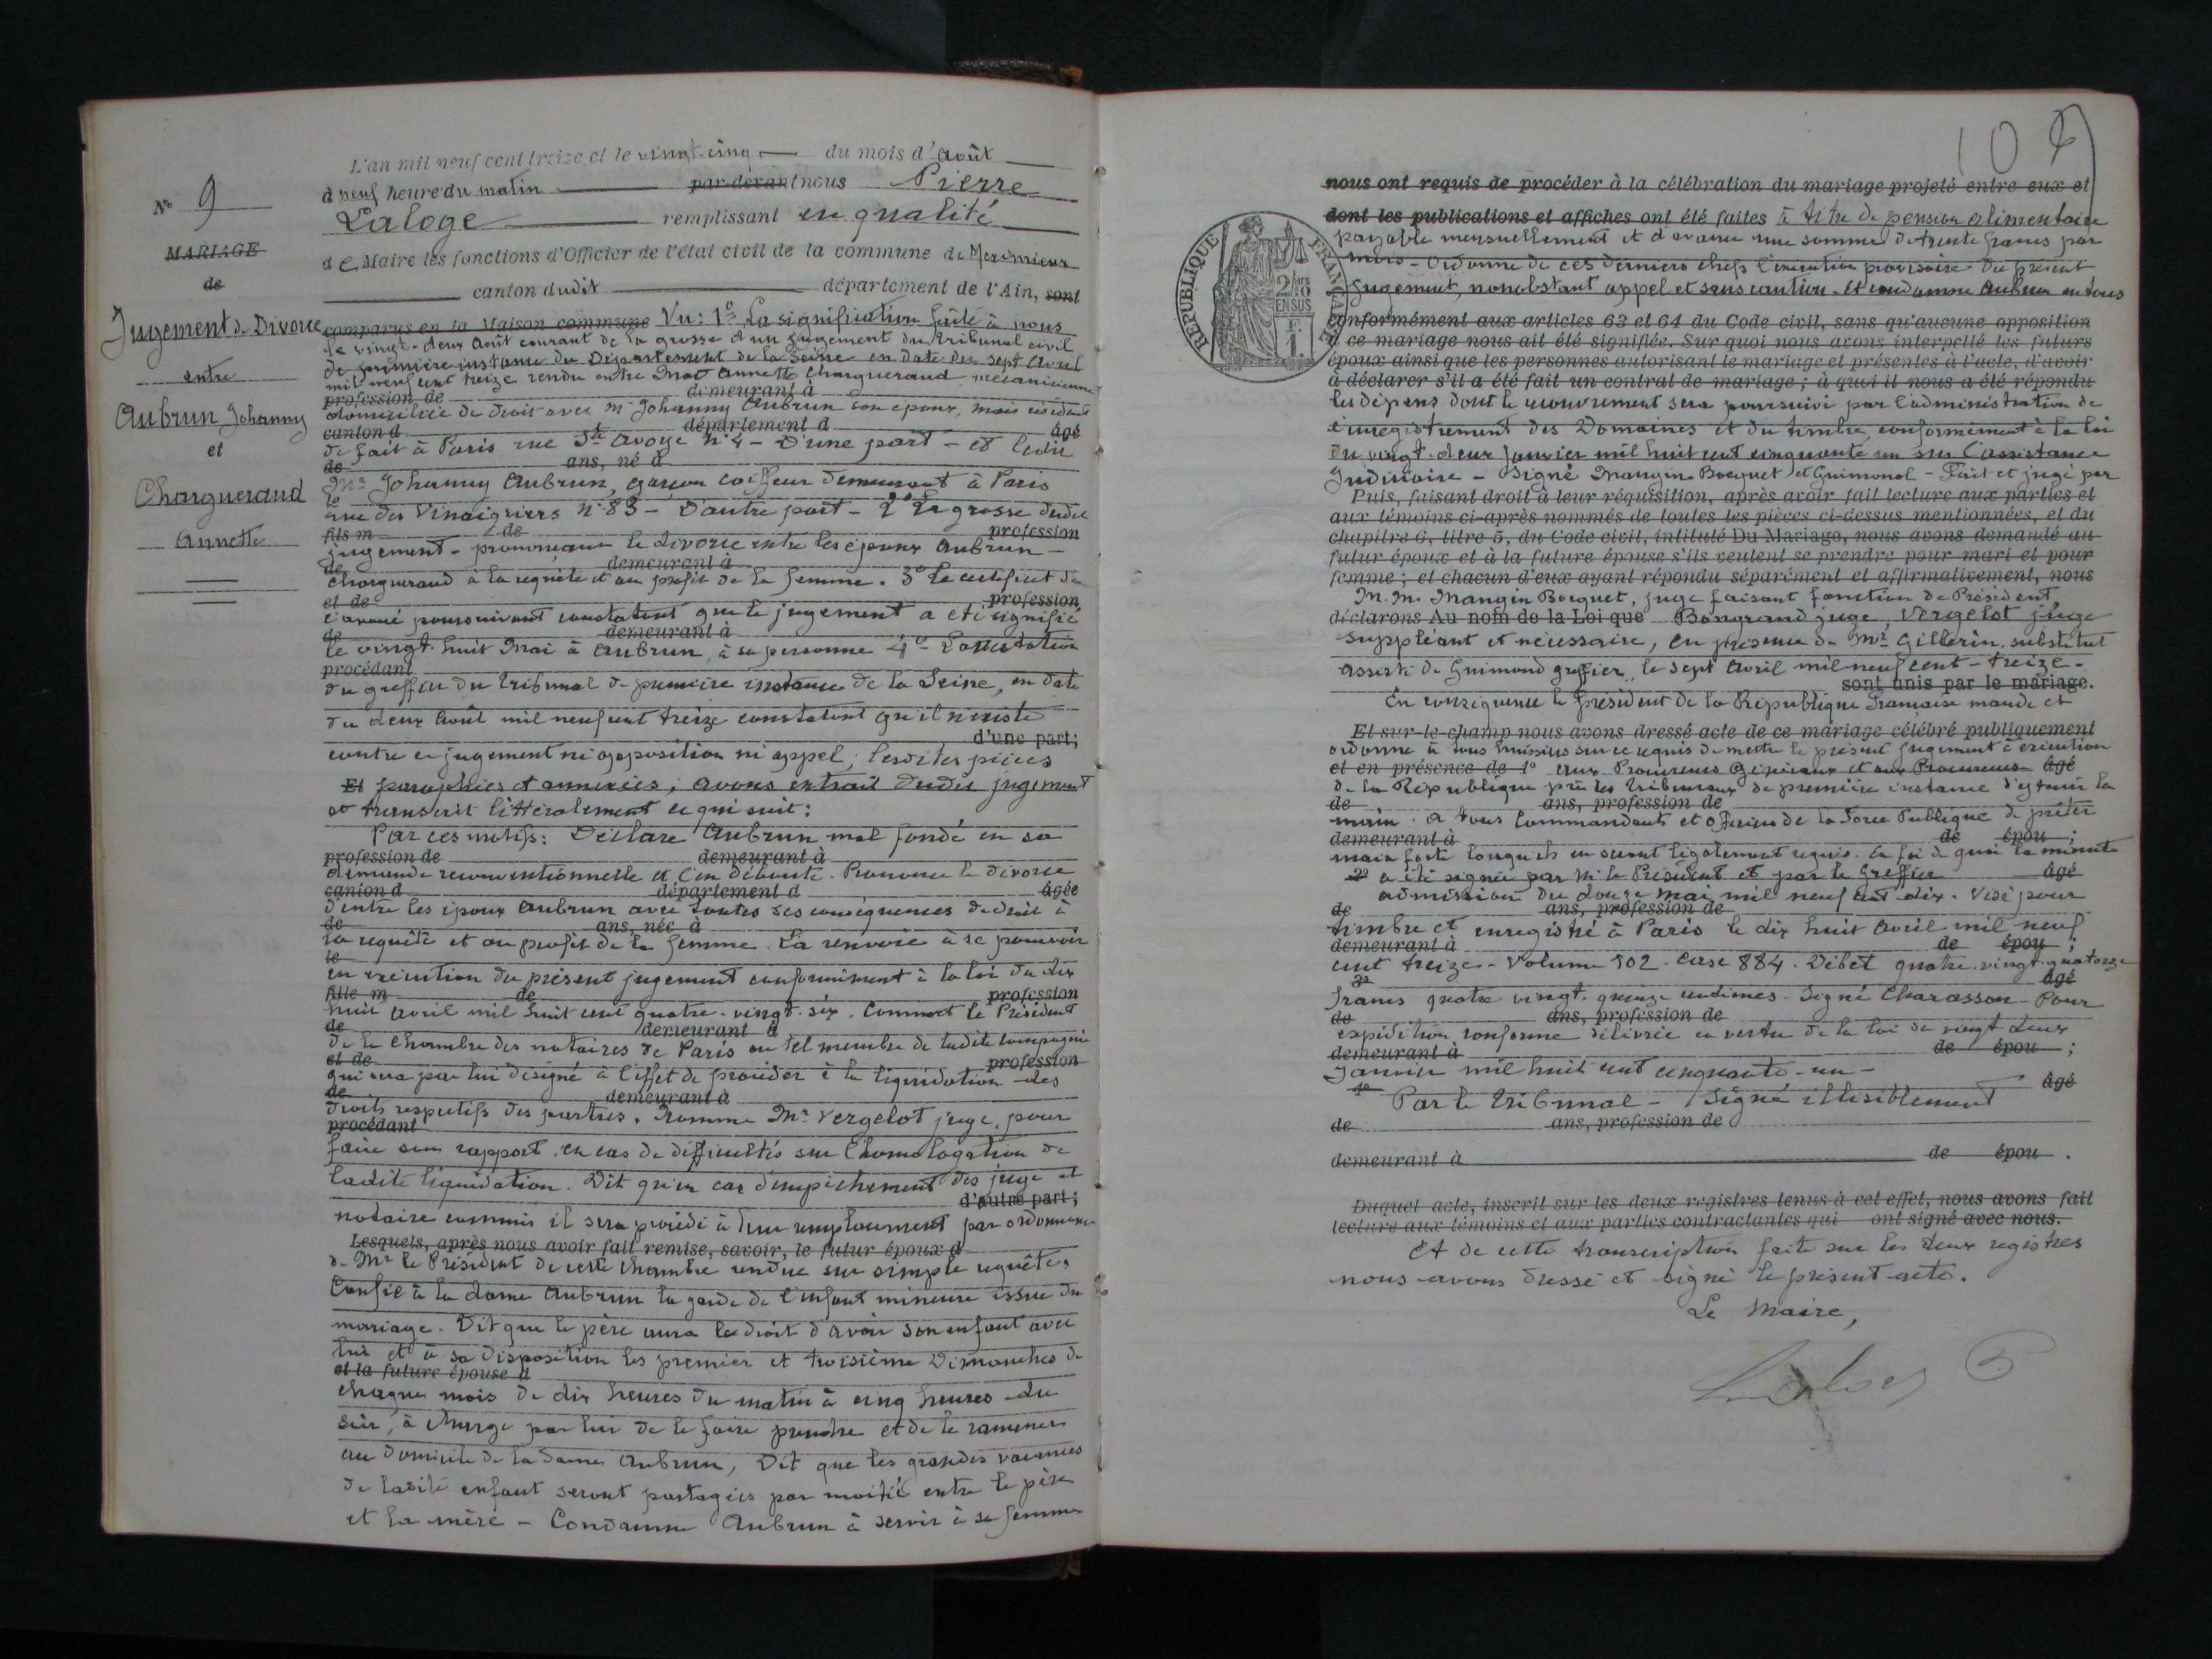 N° 9
MARIAGE
de
Jugement de Divorce
entre
Aubrun Johanny
et
Chargueraud
Annette
L'an mil neuf cent treize et le vingt-cinq du mois d'août
à neuf heure du matin par-devant nous Pierre
Laloge remplissant en qualité
de Maire les fonctions d'Officier de l'état civil de la commune de Meximieux
canton dudit département de l'Ain, sont
comparus en la Maison commune Vu : 1° La signification faite à nous
le vingt-deux août courant de la grosse d'un jugement du tribunal civil
de première instance du Département de la Seine en date du sept avril
mil neuf cent treize rendu entre Mad Annette Chargueraud mécanicienne
profession de demeurant à
domiciliée de droit avec Mr Johanny Aubrun son époux, mais résidant
canton d département d âgé
de fait à Paris rue Ste Avoye n° 4 - D'une part - et ledit
de ans, né à
Mr Johanny Aubrun, garçon coiffeur demeurant à Paris
le
rue des Vinaigriers n° 83 - D'autre part - 2° La grosse dudit
fils m de profession
jugement - prononçant le divorce entre les époux Aubrun -
de demeurant à
Chargueraud à la requête et au profit de la femme. 3° Le certificat de
et de profession
l'avoué poursuivant constatant que le jugement a été signifié
de demeurant à
le vingt-huit Mai à Aubrun, à sa personne 4° L'attestation
procédant
du greffier du Tribunal de première instance de la Seine, en date
du deux août mil neuf cent treize constatant qu'il n'existe
d'une part;
contre ce jugement ni opposition ni appel; lesdites pièces
Et paraphées et annexées; avons extrait dudit jugement
et transcrit littéralement ce qui suit :
Par ces motifs : Déclare Aubrun mal fondé en sa
profession de demeurant à
demande reconventionnelle et l'en déboute. Prononce le divorce
canton d département d âgée
d'entre les époux Aubrun avec toutes ses conséquences de droit à
de ans, née à
la requête et au profit de la femme. La renvoie à se pourvoir
le
en exécution du présent jugement conformément à la loi du dix
fille m de profession
huit avril mil huit cent quatre-vingt-six. Commet le Président
de demeurant à
de la Chambre des notaires de Paris ou tel membre de ladite compagnie
et de profession
qui sera par lui désigné à l'effet de procéder à la liquidation des
de demeurant à
droits respectifs des parties. Nomme Mr Vergelot juge, pour
procédant
faire son rapport en cas de difficultés sur l'homologation de
ladite liquidation. Dit qu'en cas d'empêchement des juge et
d'autre part;
notaire commis il sera procédé à leur remplacement par ordonnance
Lesquels, après nous avoir fait remise, savoir, le futur époux d
de Mr le Président de cette Chambre rendue sur simple requête.
Confie à la dame Aubrun la garde de l'enfant mineure issue du
mariage. Dit que le père aura le droit d'avoir son enfant avec
lui et à sa disposition les premier et troisième Dimanches de
et la future épouse d
chaque mois de dix heures du matin à cinq heures du
soir, à charge par lui de le faire prendre et de le ramener
au domicile de la dame Aubrun, Dit que les grandes vacances
de ladite enfant seront partagées par moitié entre le père
et la mère - Condamne Aubrun à servir à sa femme
10
nous ont requis de procéder à la célébration du mariage projeté entre eux et
dont les publications et affiches ont été faites à titre de pension alimentaire
payable mensuellement et d'avance une somme de trente francs par
mois - Ordonne de ces derniers chefs l'exécution provisoire du présent
Jugement, nonobstant appel et sans caution - Et condamne Aubrun en tous
conformément aux articles 63 et 64 du Code civil, sans qu'aucune opposition
à ce mariage nous ait été signifiée. Sur quoi nous avons interpellé les futurs
époux ainsi que les personnes autorisant le mariage et présentes à l'acte, d'avoir
à déclarer s'il a été fait un contrat de mariage; à quoi il nous a été répondu
les dépens dont le recouvrement sera poursuivi par l'administration de
l'enregistrement des Domaines et du timbre, conformément à la loi
du vingt-deux Janvier mil huit cent cinquante un sur l'assistance
Judiciaire - Signé Mangin Bocquet et Guimond - Fait et jugé par
Puis, faisant droit à leur réquisition, après avoir fait lecture aux parties et
aux témoins ci-après nommés de toutes les pièces ci-dessus mentionnées, et du
chapitre 6, titre 5, du Code civil, intitulé Du Mariage, nous avons demandé au
futur époux et à la future épouse s'ils veulent se prendre pour mari et pour
femme; et chacun d'eux ayant répondu séparément et affirmativement, nous
M. M. Mangin Bocquet, juge faisant fonction de Président
déclarons Au nom de la Loi que Bongrand juge, Vergelot juge
suppléant et nécessaire, en présence de Mr Gillerin, substitut
assisté de Guimond greffier, le sept avril mil neuf cent - treize -
sont unis par le mariage.
En conséquence le Président de la République Française mande et
Et sur-le-champ nous avons dressé acte de ce mariage célébré publiquement
ordonne à tous huissiers sur ce requis de mettre le présent Jugement à exécution
et en présence de 1° aux Procureurs Généraux et aux Procureurs âgé
de la République près les Tribunaux de première instance d'y tenir la
de ans, profession de
main. A tous Commandants et Officiers de la Force Publique de prêter
demeurant à de épou ;
main forte lorsqu'ils en seront légalement requis. En foi de quoi la minute
2° a été signée par Mr le Président et par le Greffier âgé
admission du douze mai mil neuf cent dix. Visé pour
de ans, profession de
timbre et enregistré à Paris le dix huit avril mil neuf
demeurant à de épou ;
cent treize - Volume 902. Case 884. Débet quatre-vingt-quatorze
3° âgé
francs quatre vingt-quinze centimes - Signé Charasson - Pour
de ans, profession de
expédition conforme délivrée en vertu de la loi du vingt deux
demeurant à de épou ;
Janvier mil huit cent cinquante - un -
4° âgé
Par le Tribunal - Signé illisiblement
de ans, profession de
demeurant à de épou .
Duquel acte, inscrit sur les deux registres tenus à cet effet, nous avons fait
lecture aux témoins et aux parties contractantes qui ont signé avec nous.
Et de cette transcription faite sur les deux registres
nous avons dressé et signé le présent acte.
Le Maire,
RÉPUBLIQUE FRANÇAISE
2/10
EN SUS
1F.